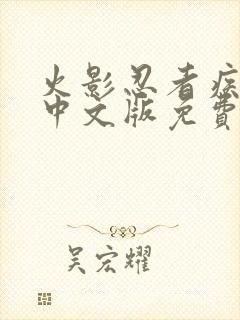 火影忍者疾
中文版免費
吴宏耀